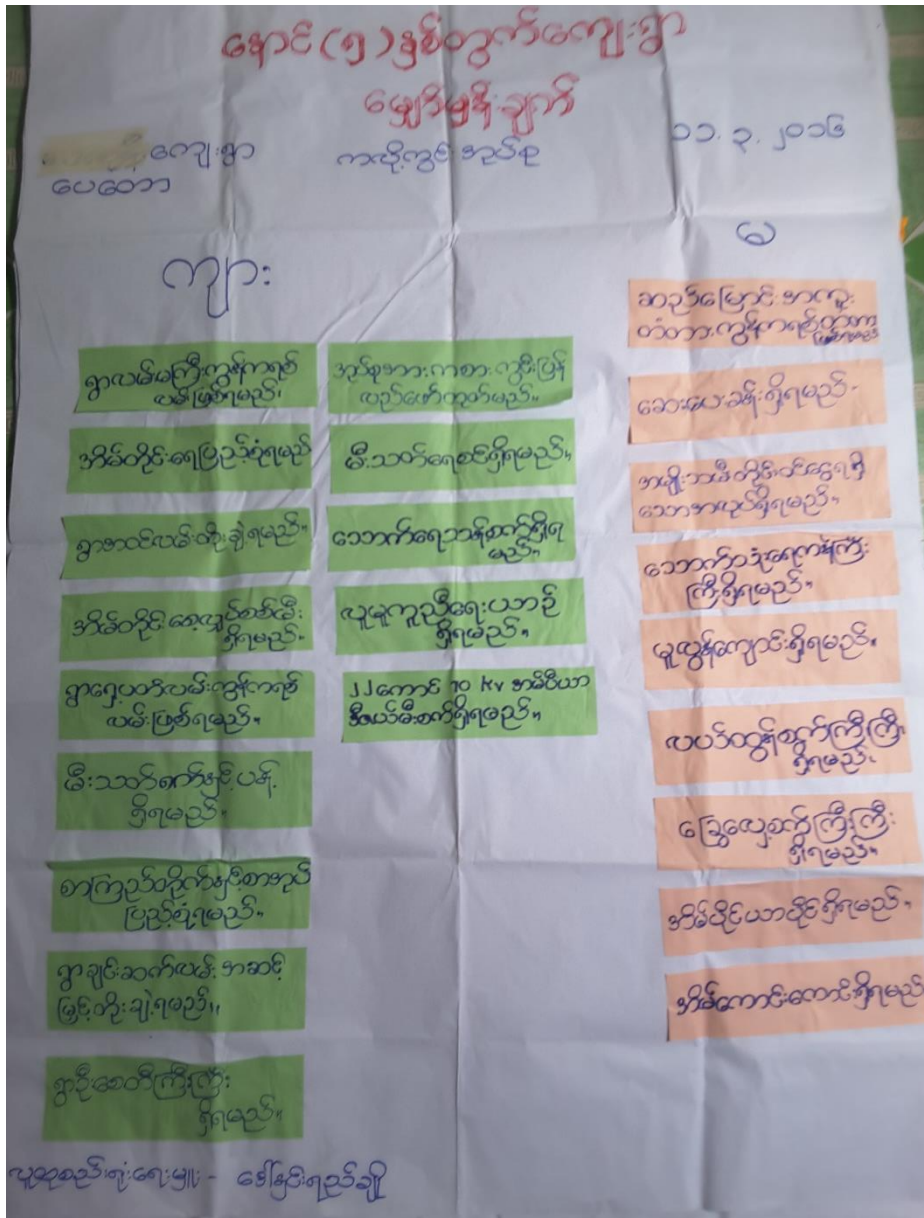 နောင်(၅)နှစ်တွက်ကျေးရွာ
မျှော်မှန်းချက်
ကျေးရွာ
ပေတော
ကလိုကွင်းအုပ်စု
၁၁.၃.၂၀၁၆
ကျား
မ
ရွာလမ်းမကြီးကွန်ကရစ်
လမ်းဖြစ်ရမည်၊
အိမ်တိုင်းရေပြည့်စုံရမည်
ရွာအဝင်လမ်းတိုးချဲ့ရမည်။
အိမ်တိုင်းစေ့လျှပ်စစ်မီး
ရှိရမည်။
ရွာရှေ့ပတ်လမ်းကွန်ကရစ်
လမ်းဖြစ်ရမည်။
မီးသတ်ရုက်နှင့်ပန့်
ရှိရမည်။
စာကြည့်တိုက်နှင့်စာအုပ်
ပြည့်စုံရမည်။
ရွာချင်းဆက်လမ်းအဆင့်
မြှင့်တိုးချဲ့ရမည်။
ရွာဦးစေတီကြီးကြီး
ရှိရမည်။
အုပ်စုအားကစားကွင်းပြန်
လည်ဖော်ထုတ်မည်။
မီးသတ်ရေစင်ရှိရမည်။
သောက်ရေသန့်စက်ရှိရ
မည်။
လူမှုကူညီရေးယာဉ်
ရှိရမည်။
၂၂ကောင် 70 kv အမ်ပီယာ
ဒီဇယ်မီးစက်ရှိရမည်။
ဆည်မြောင်းအကူး
တံတားကွန်ကရစ်တံတား
ဖြစ်ရမည်
ဆေးပေးခန်းရှိရမည်။
အမျိုးသမီးတိုင်းဝင်ငွေရရှိ
သောအလုပ်ရှိရမည်။
သောက်သုံးရေကန်ကြီး
ကြီးရှိရမည်။
မူလွန်ကျောင်းရှိရမည်။
လယ်ထွန်စက်ကြီးကြီး
ရှိရမည်၊
ခြွေလှေ့စက်ကြီးကြီး
ရှိရမည်။
အိမ်ပိုင်ယာပိုင်ရှိရမည်။
အိမ်ကောင်းကောင်းရှိရမည်
လူထုစည်းရုံးရေးမှူး - ဒေါ်နှင်းရည်ချို